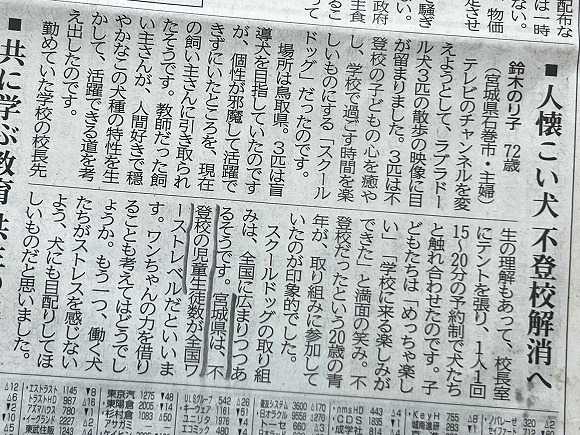 配布な
は一時
ない。
、物価
定させ
騒ぎ
政府
主食
■人懐こい犬 不登校解消へ
鈴木のり子 72歳
(宮城県石巻市・主婦)
テレビのチャンネルを変
えようとして、ラブラドー
ル犬3匹の散歩の映像に目
が留まりました。3匹は不
登校の子どもの心を癒や
し、学校で過ごす時間を楽
しいものにする「スクール
ドッグ」だったのです。
場所は鳥取県。3匹は盲
導犬を目指していたのです
が、個性が邪魔して活躍で
きずにいたところを、現在
の飼い主さんに引き取られ
たそうです。教師だった飼
い主さんが、人間好きで穏
やかなこの犬種の特性を生
かして、活躍できる道を考
え出したのです。
勤めていた学校の校長先
生の理解もあって、校長室
にテントを張り、1人1回
15〜20分の予約制で犬たち
と触れ合わせたのです。子
どもたちは「めっちゃ楽し
い」「学校に来る楽しみが
できた」と満面の笑み。不
登校だったという20歳の青
年が、取り組みに参加して
いたのが印象的でした。
スクールドッグの取り組
みは、全国に広まりつつあ
るそうです。宮城県は、不
登校の児童生徒数が全国ワ
ーストレベルだといいま
す。ワンちゃんの力を借り
ることも考えてはどうでし
ょうか。もう一つ、働く犬
たちがストレスを感じない
よう、犬にも目配りしてほ
しいものだと思いました。
■共に学ぶ教育